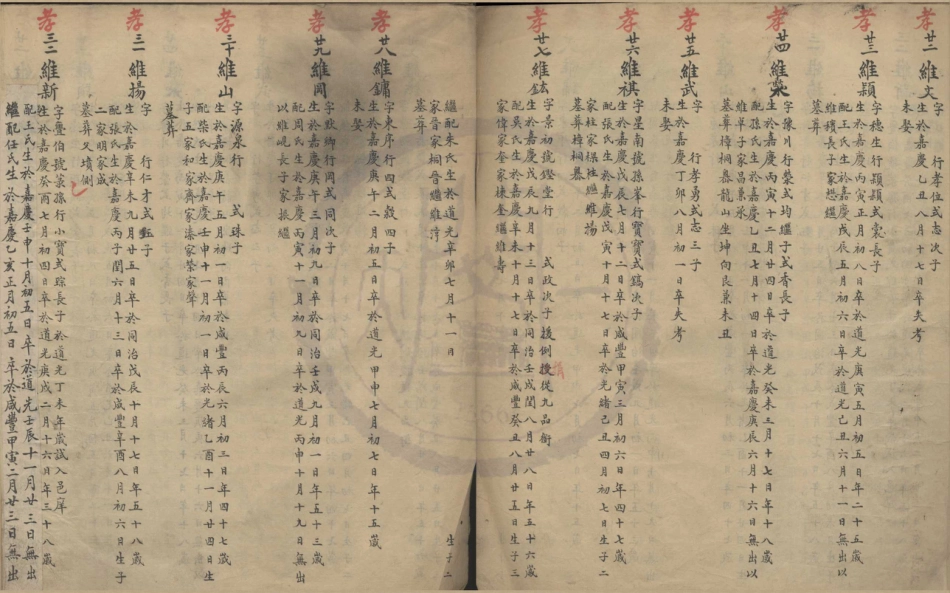 孝
廿二 維文
字 行孝位式志次子
生於嘉慶乙丑八月十七日卒失考
未娶
孝
廿三 維顯
字穗生行顯顯式裳長子
生於嘉慶丙寅正月初八日卒於道光庚寅五月初五日年二十五歲
配王氏生於嘉慶戊辰五月初六日卒於道光己丑六月十一日無出以
維積長子家想繼
墓葬
孝
廿四 維榮
字豫川行榮式均繼子式香長子
生於嘉慶丙寅十二月廿四日卒於道光癸未三月十七日年十八歲
配孫氏生於嘉慶乙丑七月十四日卒於嘉慶庚辰六月十六日無出以
維早子家昌兼承
墓葬樟桐墓龍山坐坤向艮兼未丑
孝
廿五 維武
字 行孝勇式志三子
生於嘉慶丁卯八月初一日卒失考
未娶
孝
廿六 維祺
字星南號孫峯行寶式鎬次子
生於嘉慶戊辰七月十二日卒於咸豐甲寅三月初六日年四十七歲
配張氏生於嘉慶戊寅十月十七日卒於光緒己丑四月初七日生子二
家柱家楳柱繼維揚
墓葬樟桐墓
孝
廿七 維鉉
字景初號鏗堂行 式政次子援例授從九品銜
生於嘉慶戊辰九月十三日卒於同治壬戌閏八月廿八日年五十六歲
配莫氏生於嘉慶辛未十月十七日卒於咸豐癸丑八月廿五日生子三
家偉家奎家棟奎繼維壽
繼配朱氏生於道光辛卯七月十一日 生子二
家晉家桐晉繼維淯
墓葬
孝
廿八 維鏞
字東序行四式敘四子
生於嘉慶庚午二月初五日卒於道光甲申七月初七日年十五歲
未娶
孝
廿九 維岡
字歡卿行岡式同次子
生於嘉慶庚午三月初九日卒於同治壬戌九月初一日年五十三歲
配周氏生於嘉慶丙寅十一月初九日卒於道光丙申十月十九日無出
以維峴長子家振繼
孝
三十 維山
字源泉行 式珠子
生於嘉慶庚午五月初一日卒於咸豐丙辰六月初三日年四十七歲
配柴氏生於嘉慶壬申十一月初一日卒於光緒乙酉十一月廿四日生
子五家和家齊家溱家榮家聲
墓葬
孝
三一 維揚
字 行仁才式鈺子
生於嘉慶辛未九月廿五日卒於同治戊辰十月十七日年五十八歲
配張氏生於嘉慶丙子閏六月十三日卒於咸豐辛酉八月初六日生子
二家明家成
墓葬父墳側
孝
三二 維新
字疊伯號蒙孫行小寶式琮長子於道光丁未年歲試入邑庠
生於嘉慶癸酉七月初四日卒於道光庚戌二月十六日年三十八歲
配王氏生於嘉慶壬申十月初五日卒於道光壬辰十一月廿三日無出
繼配任氏生於嘉慶乙亥正月初五日卒於咸豐甲寅二月廿三日無出